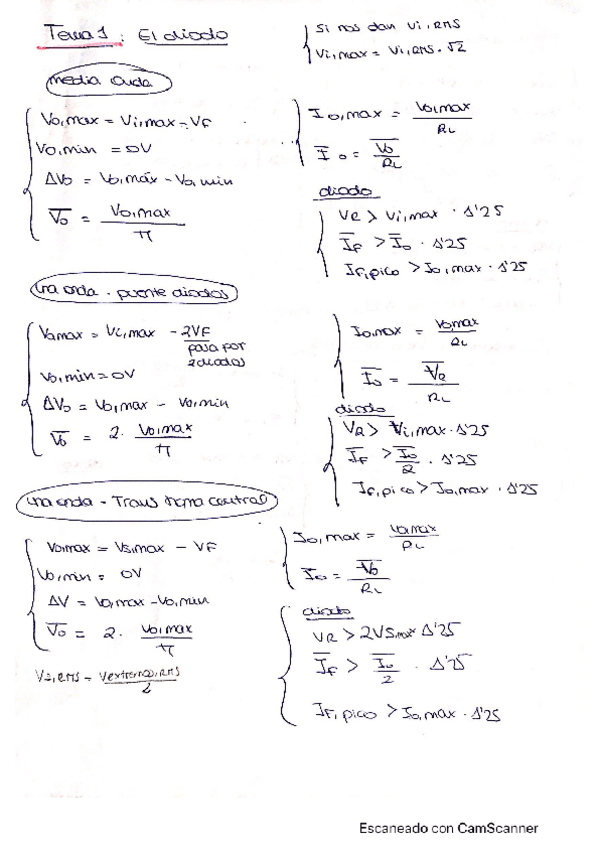 Tema 1 : El diodo
Si nos dan Vi,RMS
Vi,max = Vi,RMS · √2
media onda
Vo,max = Vi,max - VF
Vo,min = 0V
ΔVo = Vo,max - Vo,min
V̅o = Vo,max / π
Io,max = Vo,max / RL
I̅o = V̅o / RL
diodo
VR > Vi,max · 1'25
I̅F > I̅o · 1'25
IF,pico > Io,max · 1'25
onda - puente diodos
Vo,max = Vi,max - 2VF
pasa por
2 diodos
Vo,min = 0V
ΔVo = Vo,max - Vo,min
V̅o = 2 · Vo,max / π
Io,max = Vo,max / RL
I̅o = / RL
diodo
VR > Vi,max · 1'25
I̅F > I̅o / 2 · 1'25
IF,pico > Io,max · 1'25
onda - Trans toma central
Vo,max = Vs,max - VF
Vo,min = 0V
ΔV = Vo,max - Vo,min
V̅o = 2 · Vo,max / π
RMS = Vextremos,RMS / 2
Io,max = Vo,max / RL
I̅o = V̅o / RL
diodo
VR > 2Vs,max 1'25
I̅F > I̅o / 2 · 1'25
IF,pico > Io,max · 1'25
Escaneado con CamScanner